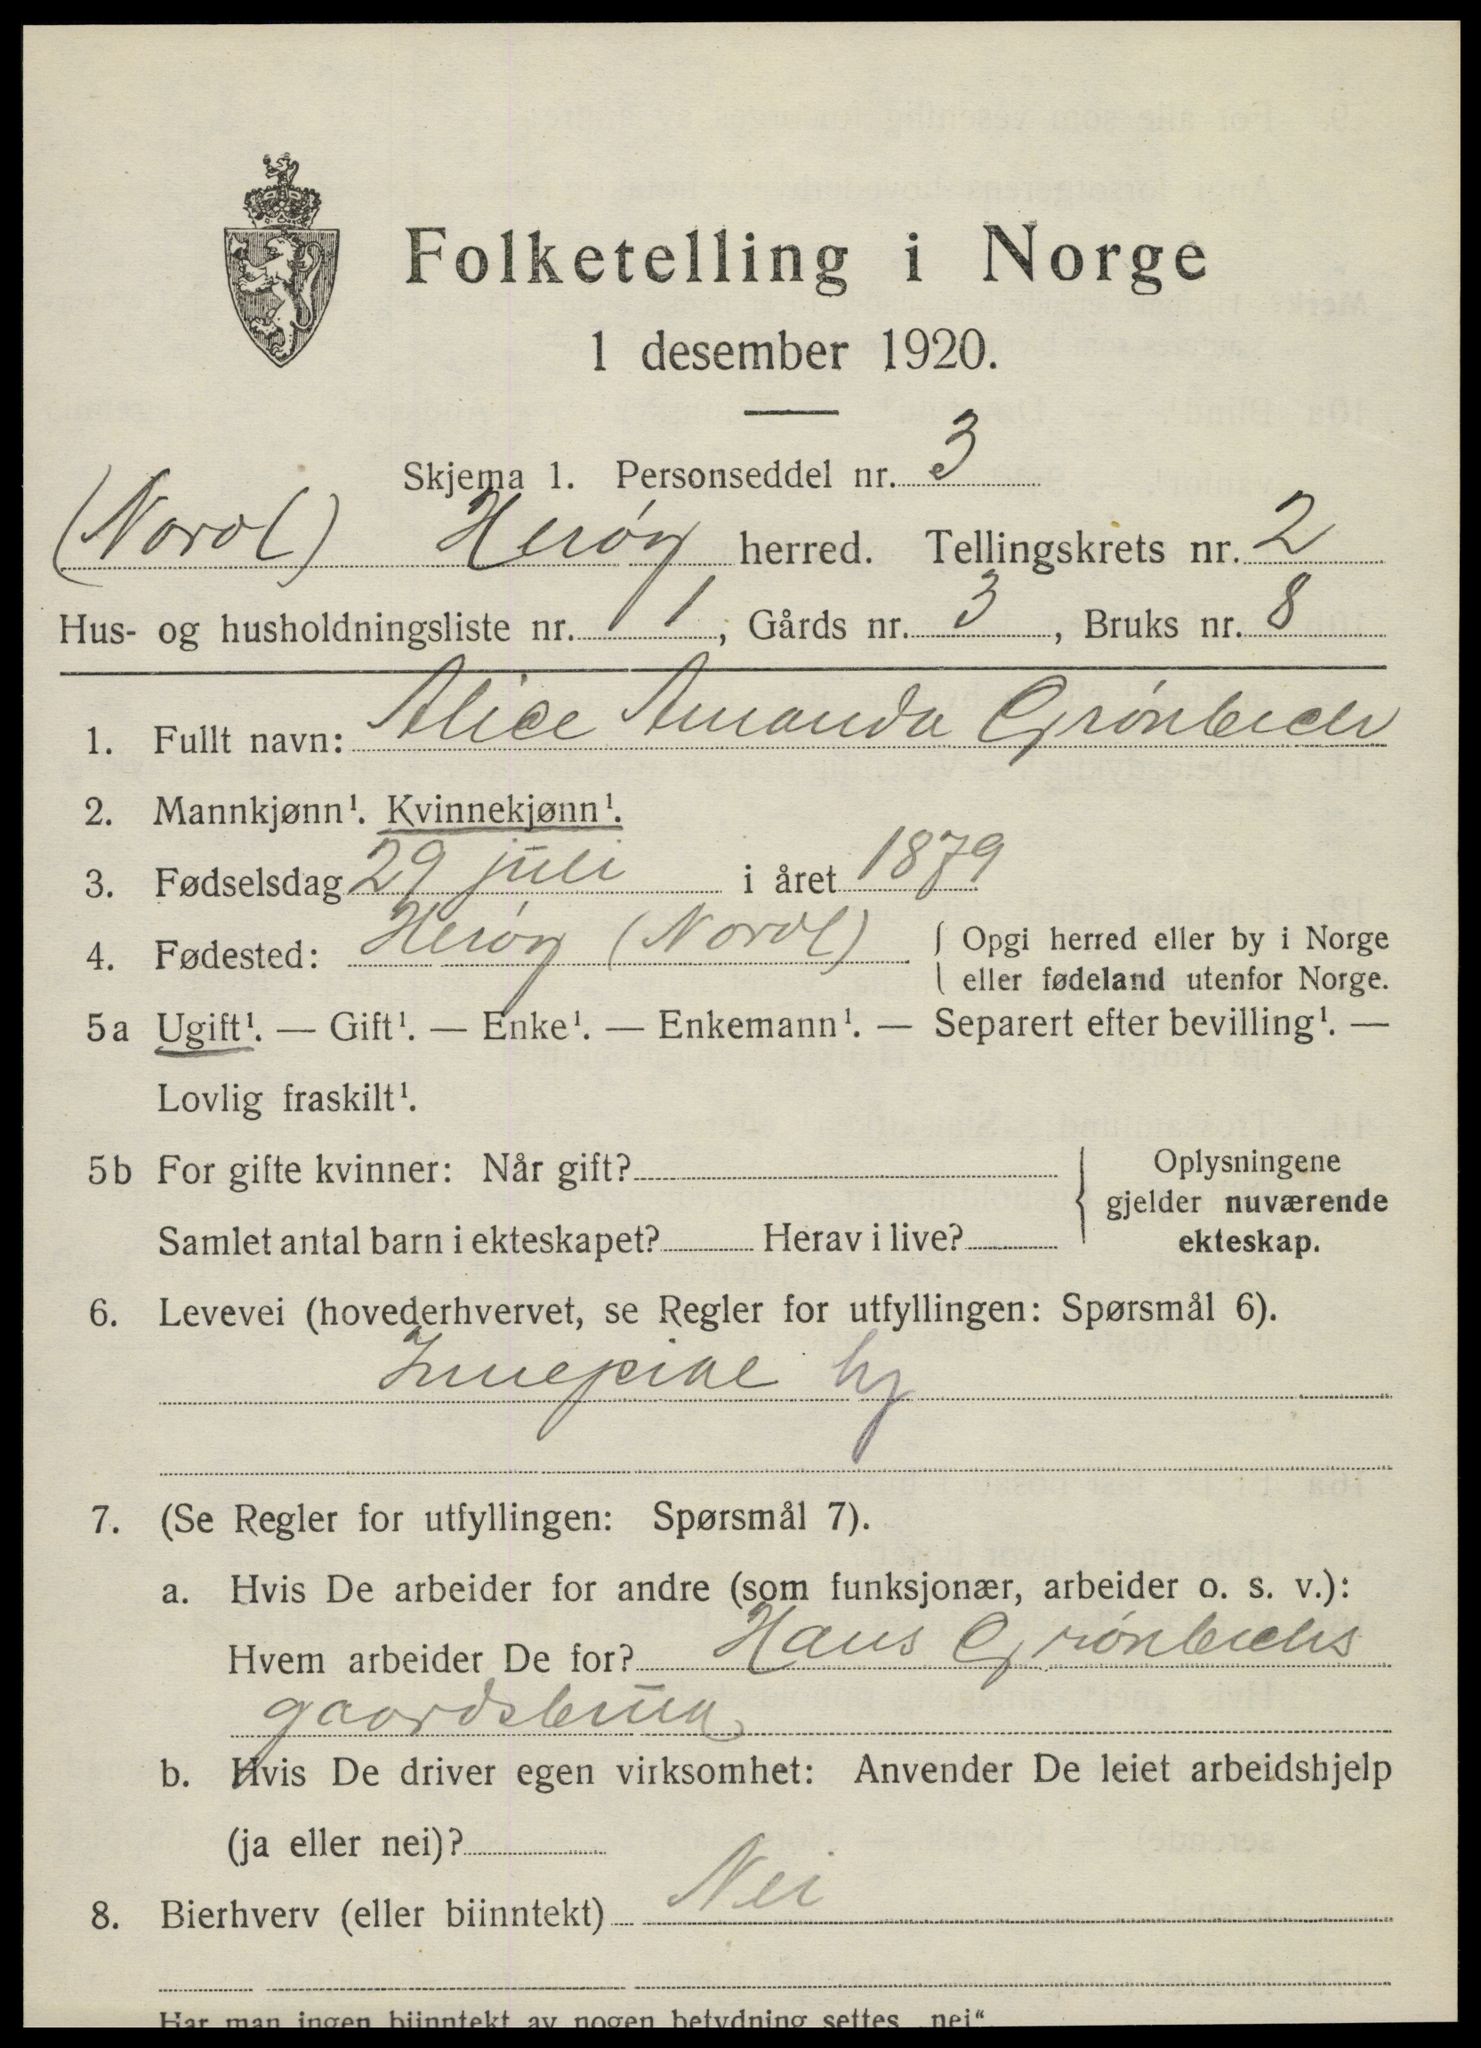 Folketelling i Norge
1 desember 1920.
Skjema 1. Personseddel nr. 3
(Nordl) Herøy herred. Tellingskrets nr. 2
Hus- og husholdningsliste nr. 1, Gårds nr. 3, Bruks nr. 8
1. Fullt navn: Alice Amanda Grønbech
2. Mannkjønn¹. Kvinnekjønn¹.
3. Fødselsdag 29 juli i året 1879
4. Fødested: Herøy (Nordl) { Opgi herred eller by i Norge
eller fødeland utenfor Norge.
5a Ugift¹. — Gift¹. — Enke¹. — Enkemann¹. — Separert efter bevilling¹. —
Lovlig fraskilt¹.
5b For gifte kvinner: Når gift? { Oplysningene
gjelder nuværende
Samlet antal barn i ekteskapet? Herav i live? ekteskap.
6. Levevei (hovederhvervet, se Regler for utfyllingen: Spørsmål 6).
Innepike hj
7. (Se Regler for utfyllingen: Spørsmål 7).
a. Hvis De arbeider for andre (som funksjonær, arbeider o. s. v.):
Hvem arbeider De for? Hans Grønbechs
gaardsbruk
b. Hvis De driver egen virksomhet: Anvender De leiet arbeidshjelp
(ja eller nei)?
8. Bierhverv (eller biinntekt) Nei
Har man ingen biinntekt av nogen betydning settes „nei“